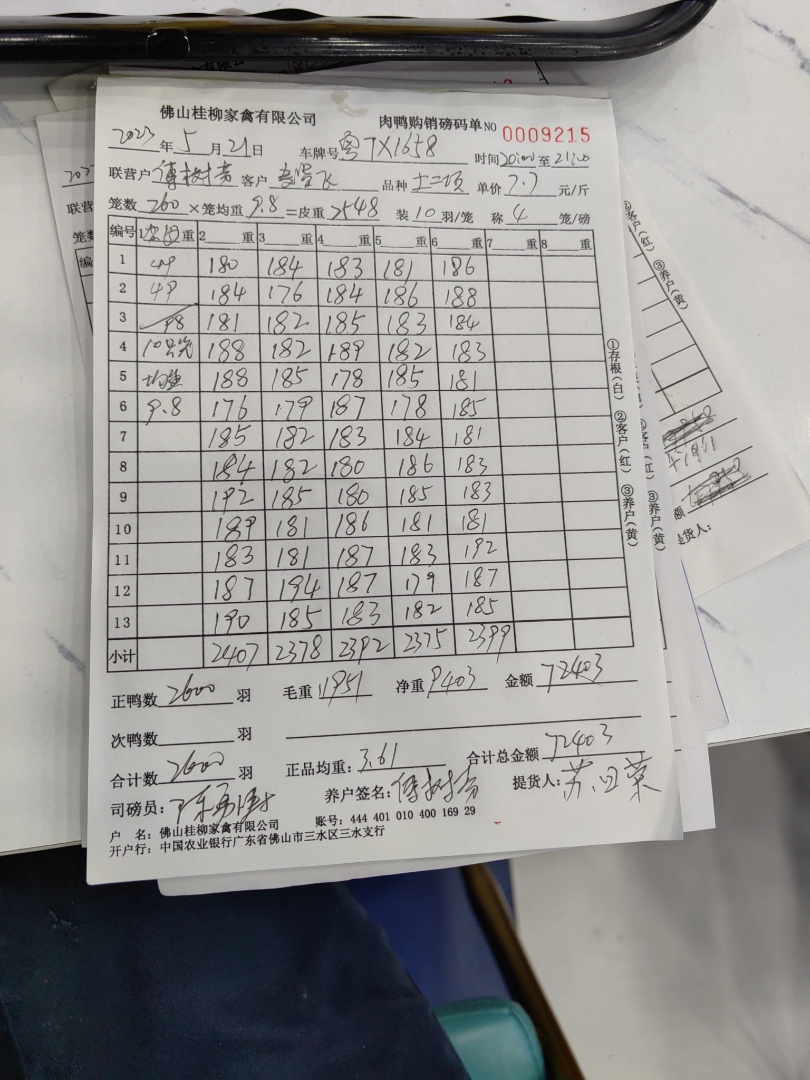 佛山桂柳家禽有限公司 肉鸭购销磅码单 NO 0009215
2023年5月21日 车牌号 粤TX1658 时间20:00至21:00
联营户 傅树芳 客户 飞 品种 单价 7.7 元/斤
笼数 260 ×笼均重 9.8 =皮重 2548 装 10 羽/笼 称 4 笼/磅
编号 1 重 2 重 3 重 4 重 5 重 6 重 7 重 8 重
1 49 180 184 183 181 186
2 49 184 176 184 186 188
3 98 181 182 185 183 184
4 10只笼 188 182 189 182 183
5 均重 188 185 178 185 181
6 9.8 176 179 187 178 185
7 185 182 183 184 181
8 184 182 180 186 183
9 192 185 180 185 183
10 189 181 186 181 181
11 183 181 187 183 192
12 187 194 187 179 187
13 190 185 183 182 185
小计 2407 2378 2392 2375 2399
正鸭数 2600 羽 毛重 11951 净重 9403 金额 72403
次鸭数 羽
合计数 2600 羽 正品均重: 3.61 合计总金额 72403
司磅员: 陈 养户签名: 傅树芳 提货人: 苏
户 名: 佛山桂柳家禽有限公司 账号: 444 401 010 400 169 29
开户行: 中国农业银行广东省佛山市三水区三水支行
①存根(白) ②客户(红) ③养户(黄)